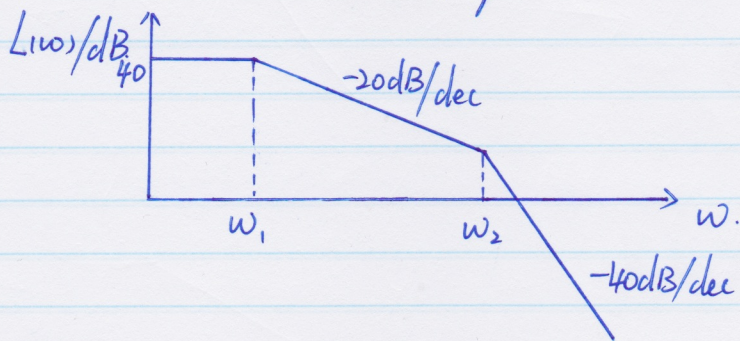 L(ω)/dB
40
-20dB/dec
ω₁
ω₂
ω.
-40dB/dec